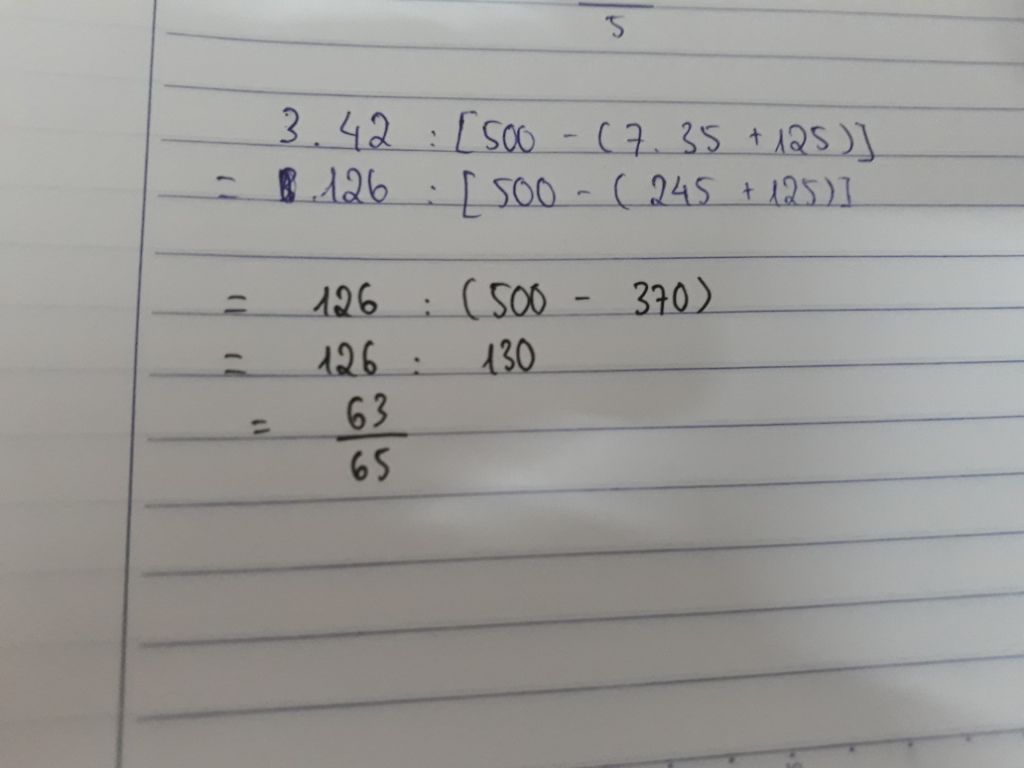 5
3.42 : [500 - (7.35 + 125)]
= .126 : [500 - (245 + 125)]
= 126 : (500 - 370)
= 126 : 130
= 63
65